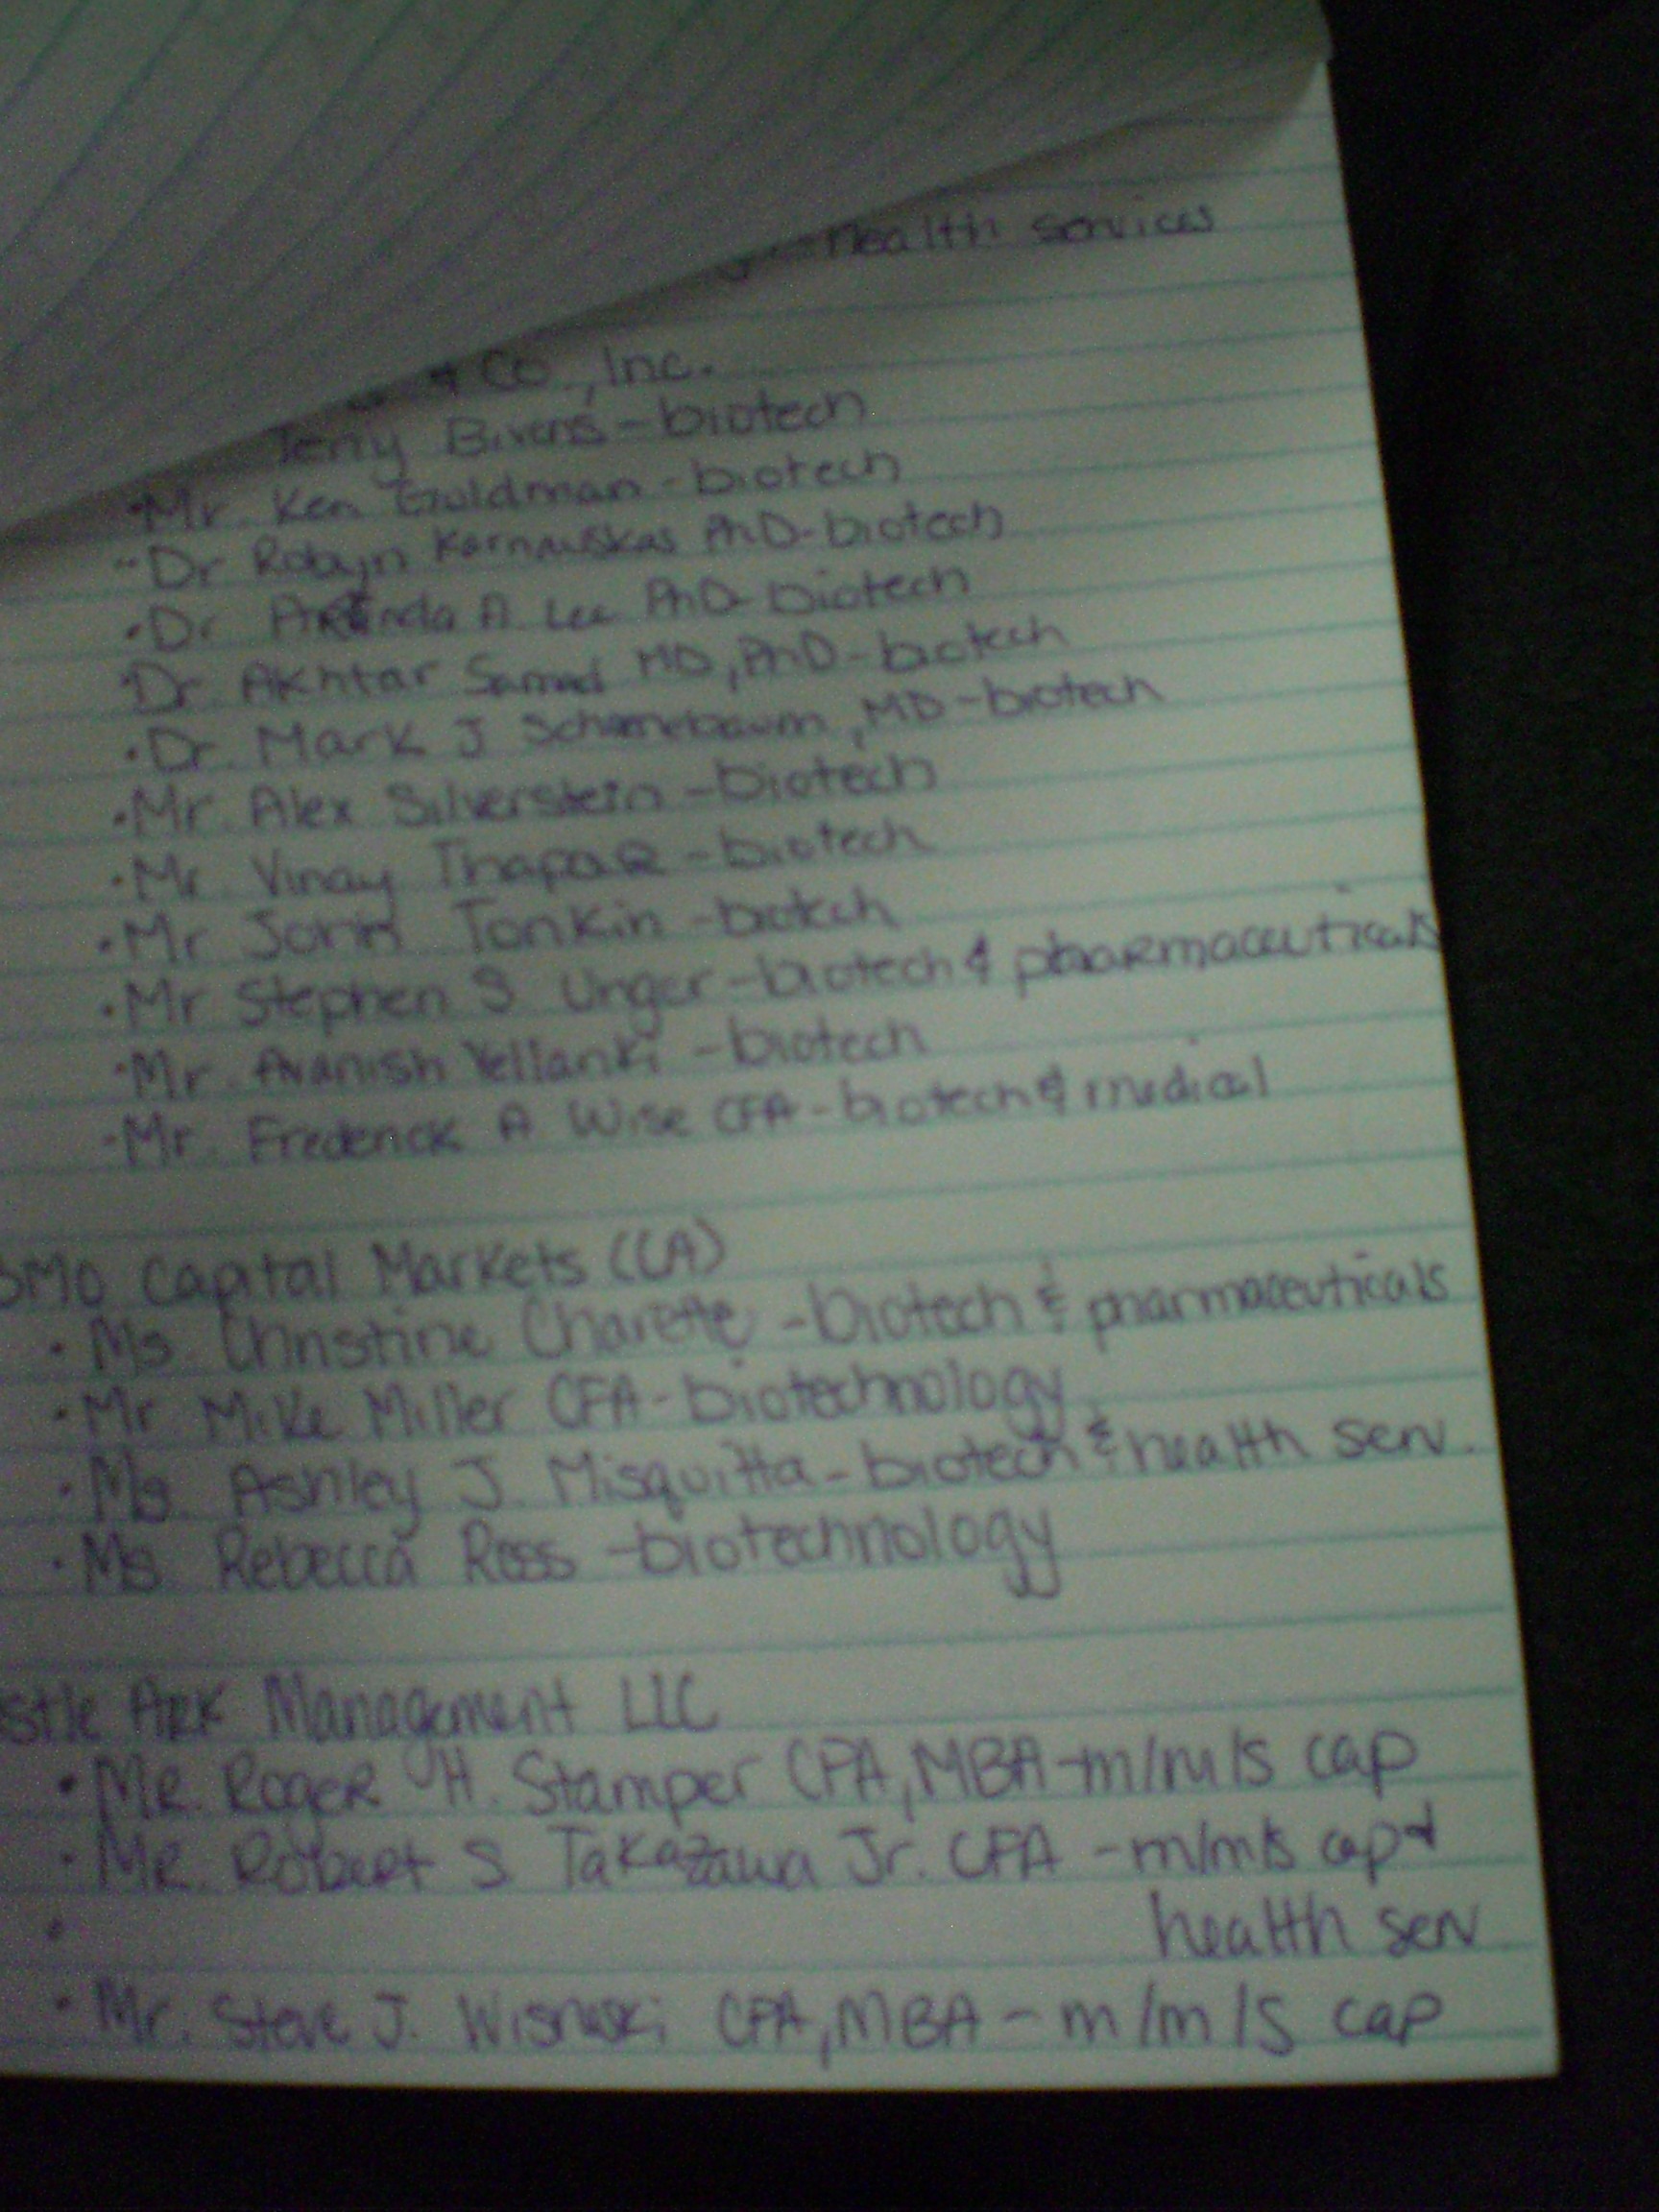 health services
& Co., Inc.
Terry Bivens - biotech
• Mr. Ken Goldman - biotech
- Dr Robyn Karnauskas PhD - biotech
• Dr A Lee PhD - biotech
• Dr. Akhtar Samad MD, PhD - biotech
• Dr. Mark J Schoenebaum, MD - biotech
• Mr. Alex Silverstein - biotech
• Mr. Vinay Thapar - biotech
• Mr John Tonkin - biotech
• Mr Stephen S Unger - biotech & pharmaceuticals
• Mr. Avanish Vellanki - biotech
- Mr. Frederick A Wise CFA - biotech & medical
BMO Capital Markets (CA)
• Ms. Christine Charette - biotech & pharmaceuticals
• Mr Mike Miller CFA - biotechnology
• Ms. Ashley J. Misquitta - biotech & health serv.
• Ms Rebecca Ross - biotechnology
stle Ark Management LLC
• Mr. Roger H. Stamper CPA, MBA - m/m/s cap
• Mr. Robert S Takazawa Jr. CFA - m/m/s cap &
health serv
•
• Mr. Steve J. Wisneski CPA, MBA - m/m/s cap